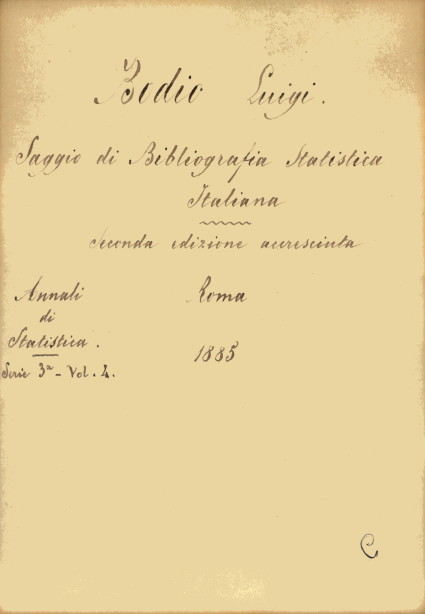 Bodio Luigi.
Saggio di Bibliografia Statistica
Italiana
Seconda edizione accresciuta
Annali
di
Statistica.
Serie 3ª - Vol. 4.
Roma
1885
C